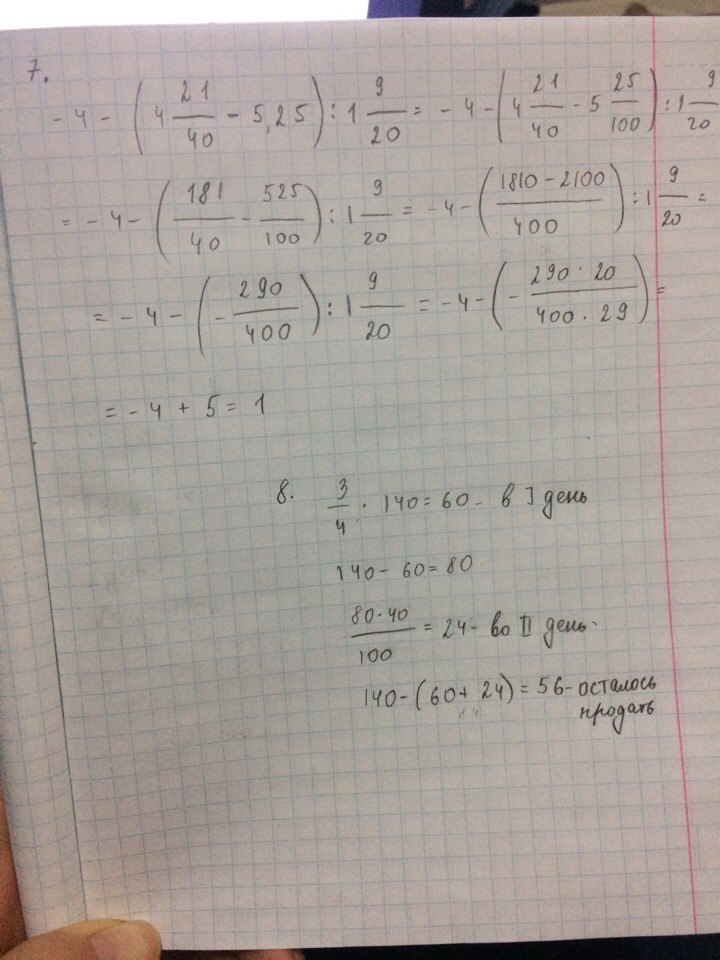 7.
- 4 - (4 21/40 - 5,25) : 1 9/20 = - 4 - (4 21/40 - 5 25/100) : 1 9/20
= - 4 - (181/40 - 525/100) : 1 9/20 = - 4 - ((1810 - 2100)/400) : 1 9/20 =
= - 4 - (- 290/400) : 1 9/20 = - 4 - (- (290 · 20)/(400 · 29)) =
= - 4 + 5 = 1
8. 3/4 · 140 = 60 - в I день
140 - 60 = 80
(80 · 40)/100 = 24 - во II день.
140 - (60 + 24) = 56 - осталось
84 продать